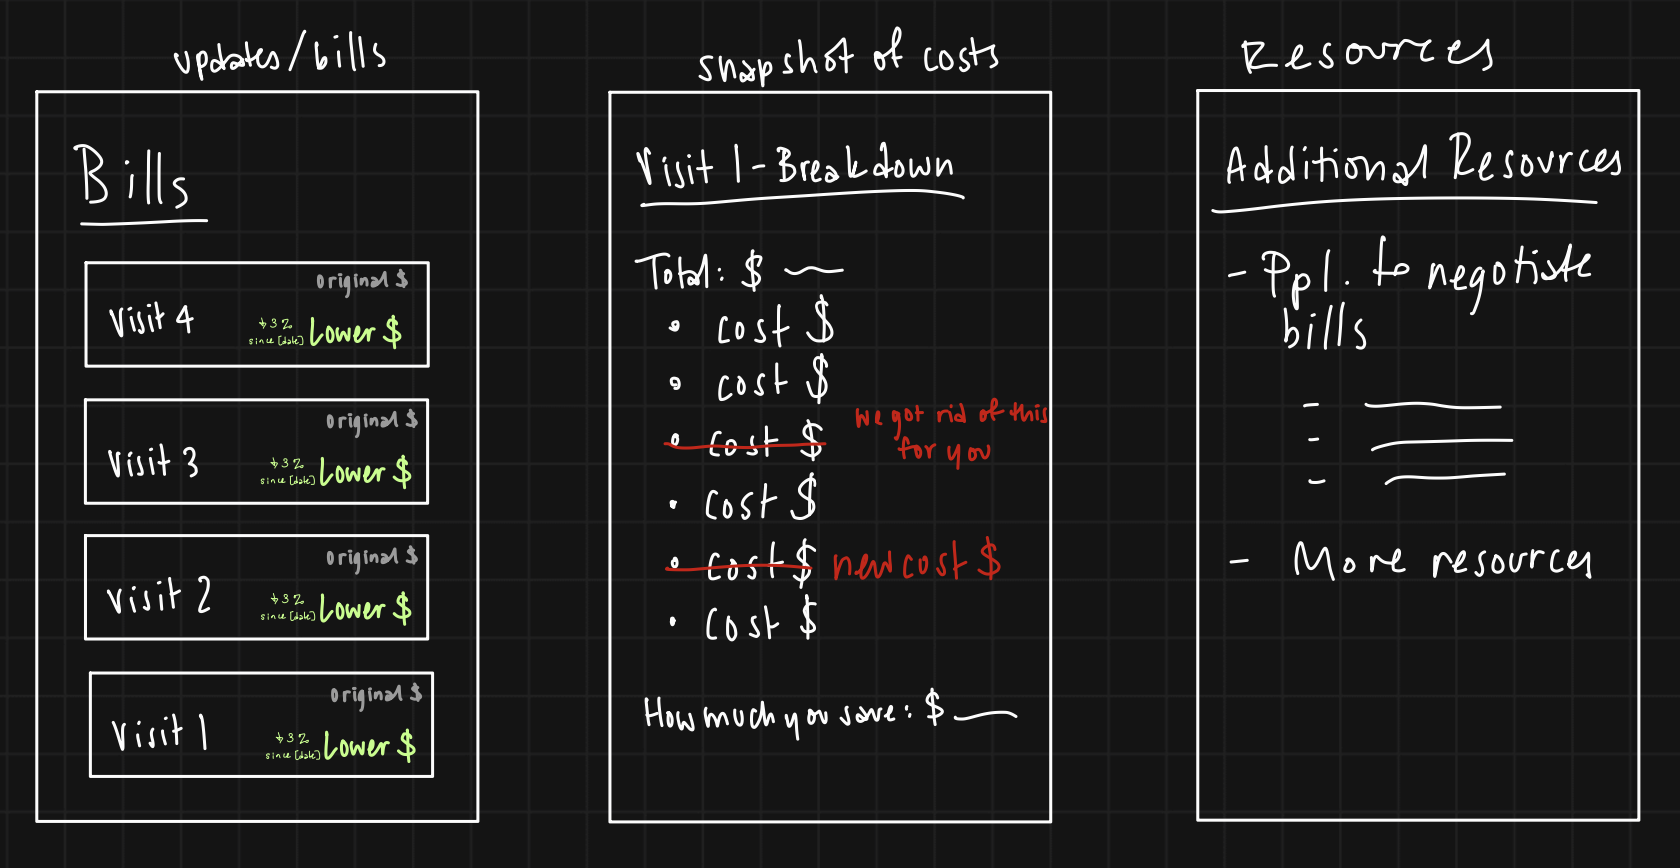 updates/bills
Bills
original $
Visit 4
↓3%
since [date]
Lower $
original $
Visit 3
↓3%
since [date]
Lower $
original $
Visit 2
↓3%
since [date]
Lower $
original $
Visit 1
↓3%
since [date]
Lower $
snapshot of costs
Visit 1 - Breakdown
Total: $
• cost $
• cost $
• cost $
we got rid of this
for you
• cost $
• cost $ new cost $
• cost $
How much you save: $
Resources
Additional Resources
- Ppl. to negotiate
bills
- More resources